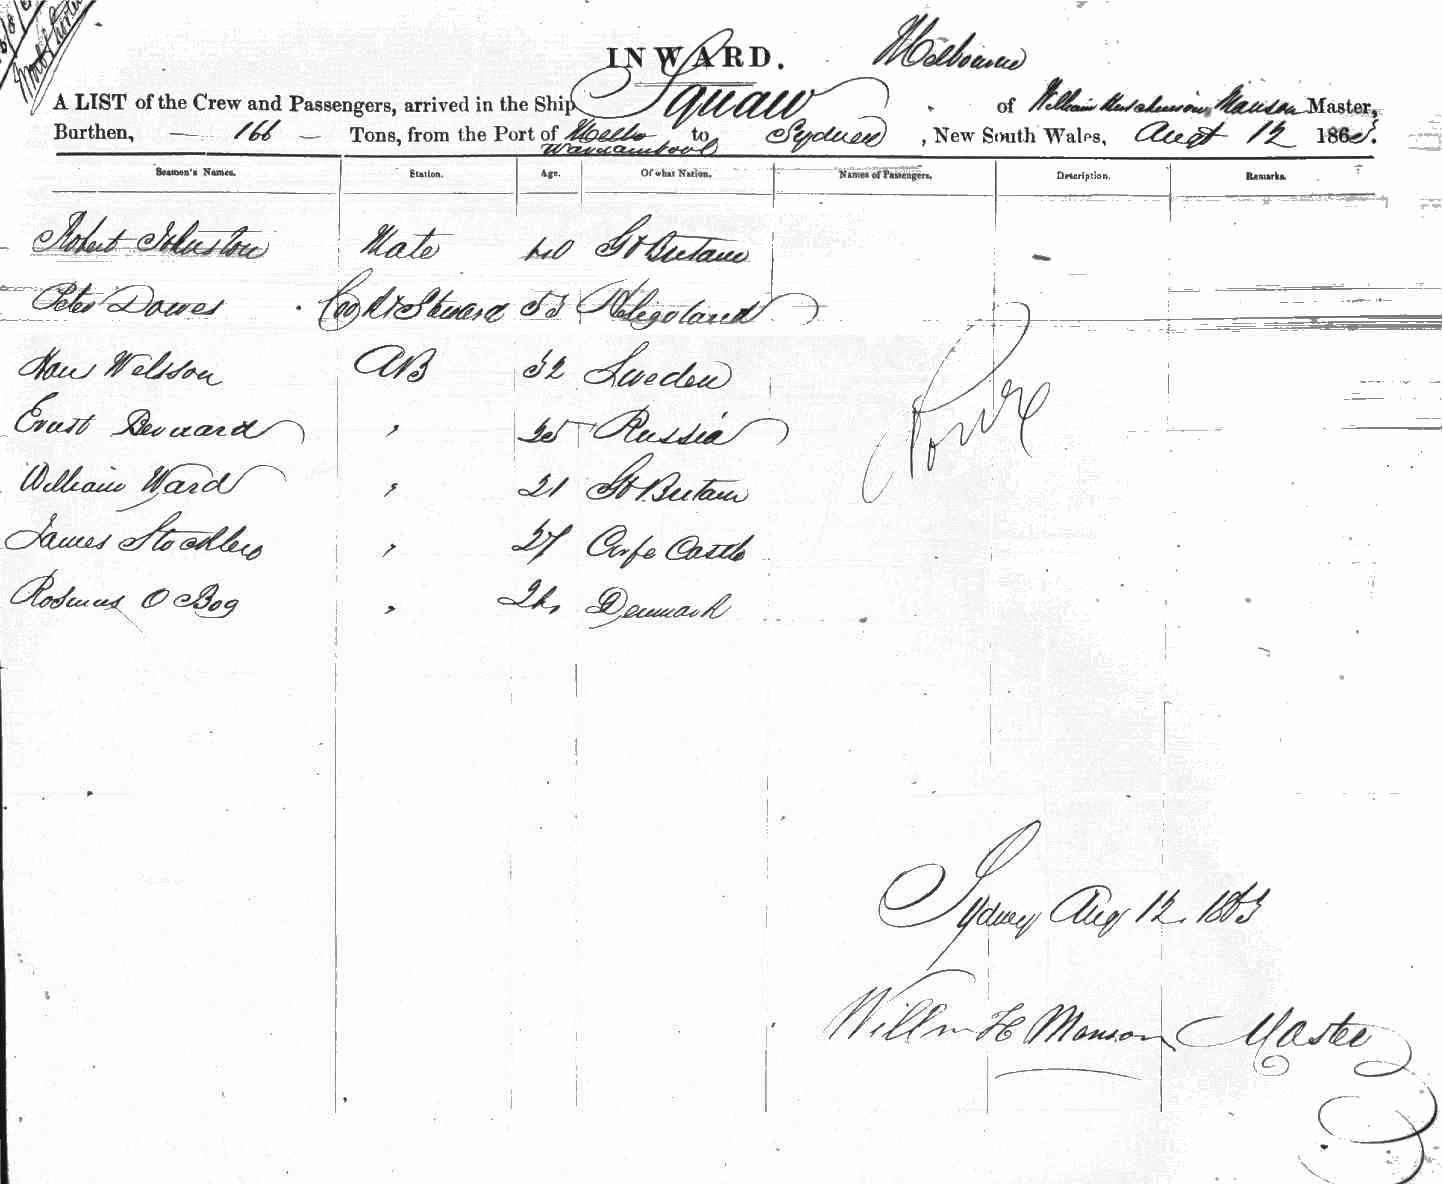 INWARD. Melbourne
A LIST of the Crew and Passengers, arrived in the Ship Squaw, of William Hutchinson Manson Master,
Burthen, — 166 — Tons, from the Port of Melbo to Sydney, New South Wales, Augt 12 1863.
Warrnambool
Seamen's Names. Station. Age. Of what Nation. Names of Passengers. Description. Remarks.
Robert Johnston Mate 40 Gt Britain
Peter Dowes Cook & Steward 53 Heligoland
Hans Welsson AB 32 Sweden
Ernst Bernard " 25 Russia
William Ward " 21 Gt Britain
James Stockley " 27 Corfe Castle
O Bog " Denmark
Sydney Aug 12. 1863
Willm H Manson Master